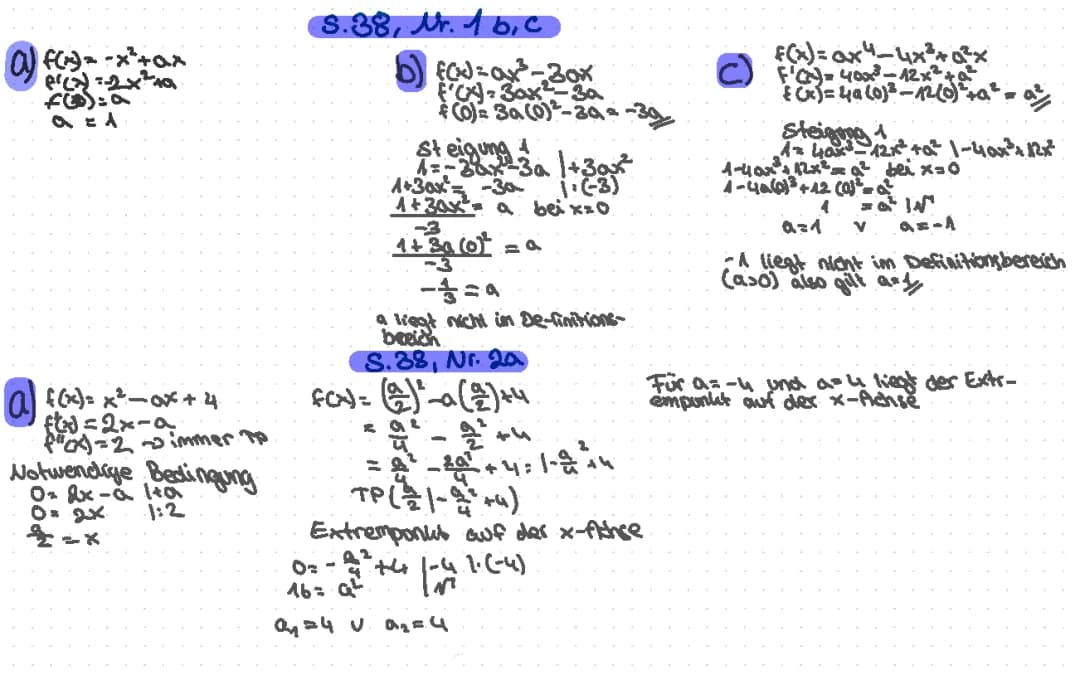 S.38, Nr. 1 b, c
a) f(x) = -x² + ax
f'(x) = -2x² + a
f'(0) = a
a = 1
b) f(x) = ax³ - 3ax
f'(x) = 3ax² - 3a
f'(0) = 3a(0)² - 3a = -3a
Steigung 1
1 = -3ax² - 3a | +3ax²
1 + 3ax² = -3a | :(-3)
1 + 3ax² / -3 = a bei x = 0
1 + 3a(0)² / -3 = a
-1/3 = a
a liegt nicht in Definitions-
bereich
c) f(x) = ax⁴ - 4x³ + a²x
f'(x) = 4ax³ - 12x² + a²
f'(x) = 4a(0)³ - 12(0)² + a² = a²
Steigung 1
1 = 4ax³ - 12x² + a² | -4ax³ + 12x²
1 - 4ax³ + 12x² = a² bei x = 0
1 - 4a(0)³ + 12(0)² = a²
1 = a² | √
a = 1 v a = -1
-1 liegt nicht im Definitionsbereich
(a>0) also gilt a = 1
S.38, Nr. 2a
a) f(x) = x² - ax + 4
f'(x) = 2x - a
f''(x) = 2 → immer TP
Notwendige Bedingung
0 = 2x - a | +a
0 = 2x | :2
a/2 = x
f(x) = (a/2)² - a(a/2) + 4
= a²/4 - a²/2 + 4
= a²/4 - 2a²/4 + 4 = | -a²/4 + 4
TP (a/2 | -a²/4 + 4)
Extrempunkt auf der x-Achse
0 = -a²/4 + 4 | -4 | ·(-4)
16 = a² | √
a₁ = 4 v a₂ = 4
Für a = -4 und a = 4 liegt der Extr-
empunkt auf der x-Achse